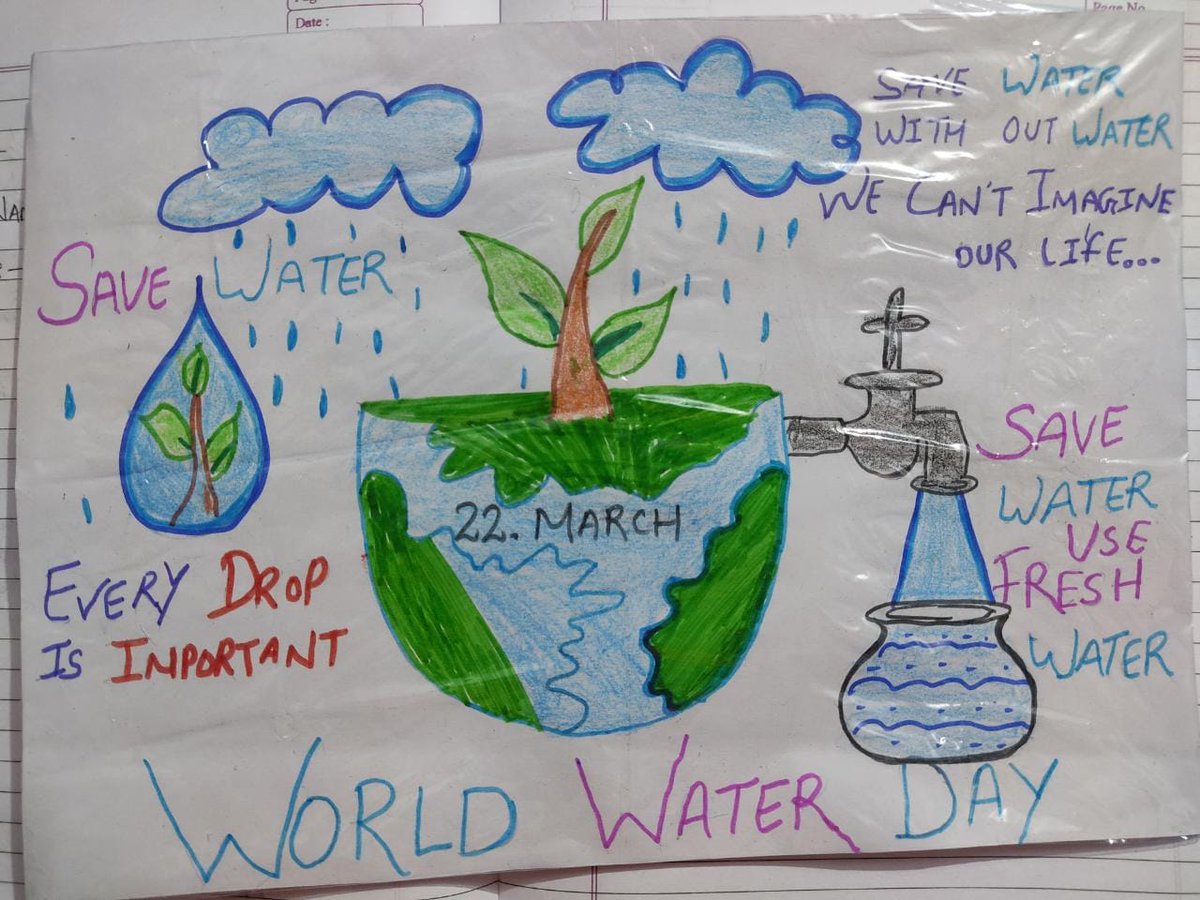 Date :
Page No
SAVE WATER
WITH OUT WATER
WE CAN'T IMAGINE
OUR LIFE...
SAVE WATER
EVERY DROP
IS IMPORTANT
22. MARCH
SAVE
WATER
USE
FRESH
WATER
WORLD WATER DAY